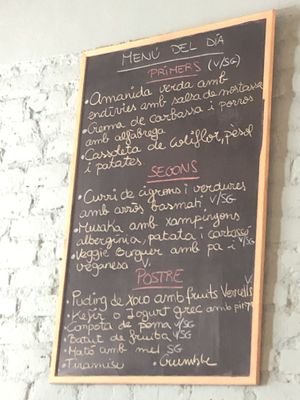 MENÚ DEL DÍA
PRIMERS (V/SG)
• Amanida verda amb
endívies amb salsa de mostassa
• Crema de carbassa i porros
amb alfàbrega V/SG
• Cassoleta de coliflor, pèsol
i patates
SEGONS
• Curri de cigrons i verdures
amb arròs basmati V/SG
• Musaka amb xampinyons
albergínia, patata i carbassó
• Veggie Burguer amb pa i V/SG
veganesa V
POSTRE
• Puding de xoco amb fruits Vermells V
• Kefir o Iogurt grec amb
• Compota de poma V/SG
• Batut de fruita V/SG
• Mató amb mel SG
• Tiramisú • Crumble